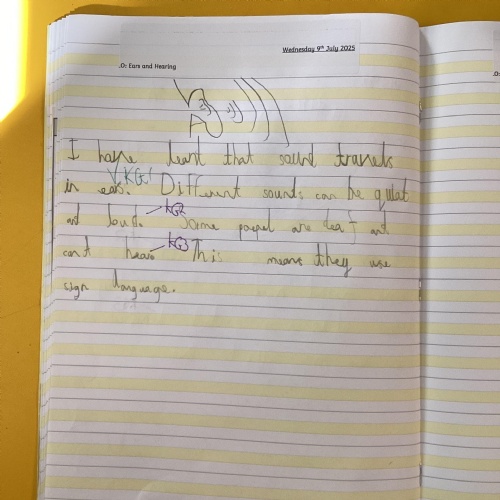 Wednesday 9th July 2025
.O: Ears and Hearing
I have leant that sound travels
in ears. KG1 Different sounds can be quiat
and loud. KG2 Some peopel are deaf and
cant hear. KG3 This means they use
sign language.